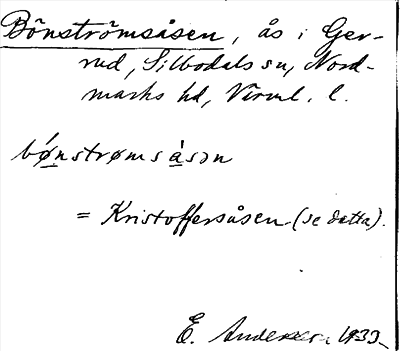 Bönströmsåsen, ås i Ger-
rud, Silbodals sn, Nord-
marks hd, Värml. l.
bǿnstrømsåsən
= Kristoffersåsen (se detta).
E. Andersson 1933